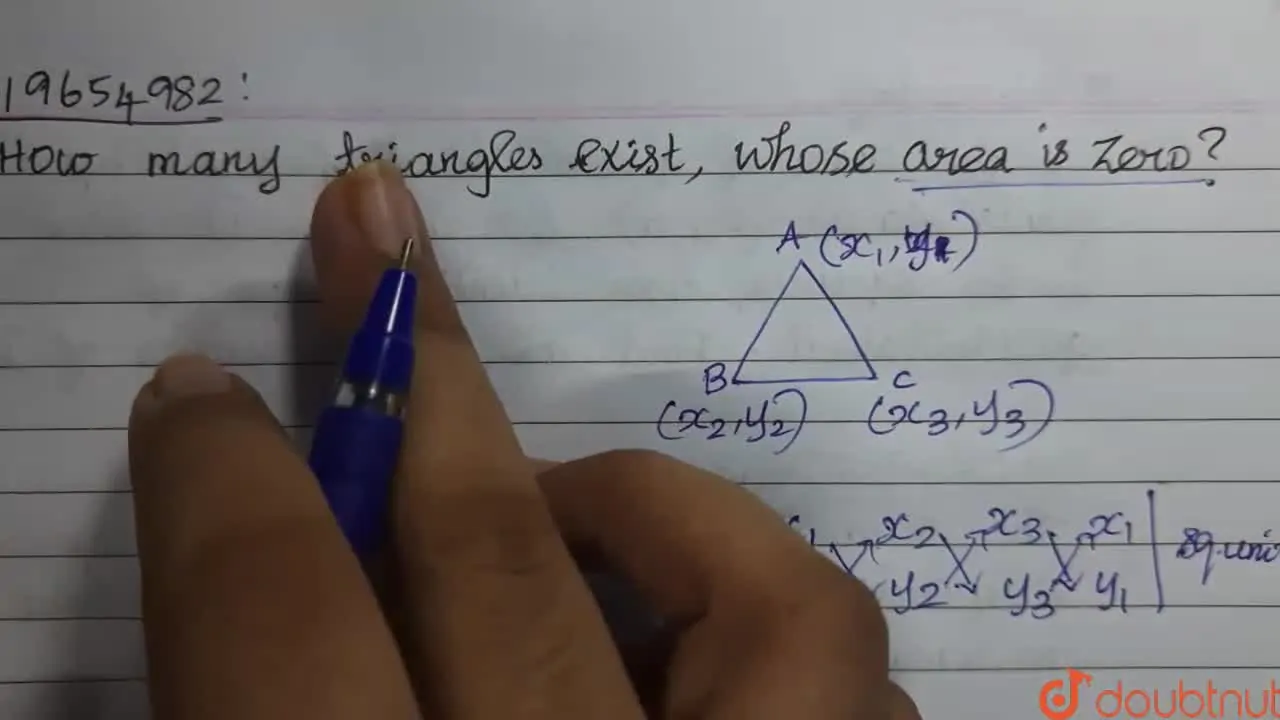 19654982:
How many triangles exist, whose area is zero?
A (x₁, y₁)
B C
(x₂, y₂) (x₃, y₃)
x₂ x₃ x₁ |
y₂ y₃ y₁
doubtnut